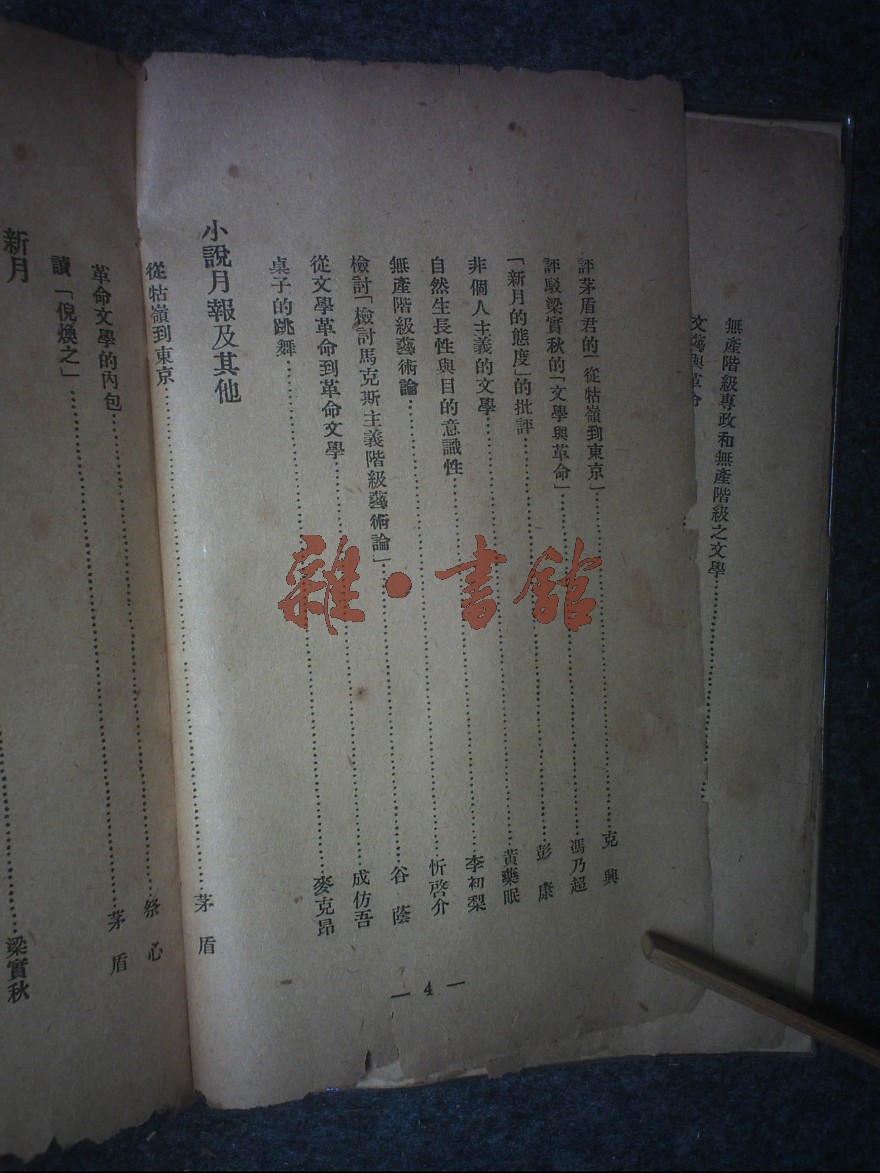 無產階級專政和無產階級之文學……
文藝與革命
評茅盾君的「從牯嶺到東京」……克興
評駁梁實秋的「文學與革命」……馮乃超
「新月的態度」的批評……彭康
非個人主義的文學……黃藥眠
自然生長性與目的意識性……李初梨
無產階級藝術論……忻啓介
檢討「檢討馬克斯主義階級藝術論」……谷蔭
從文學革命到革命文學……成仿吾
桌子的跳舞……麥克昂
小說月報及其他
從牯嶺到東京……茅盾
革命文學的內包……祭心
讀「倪煥之」……茅盾
新月
……梁實秋
— 4 —
雜·書館